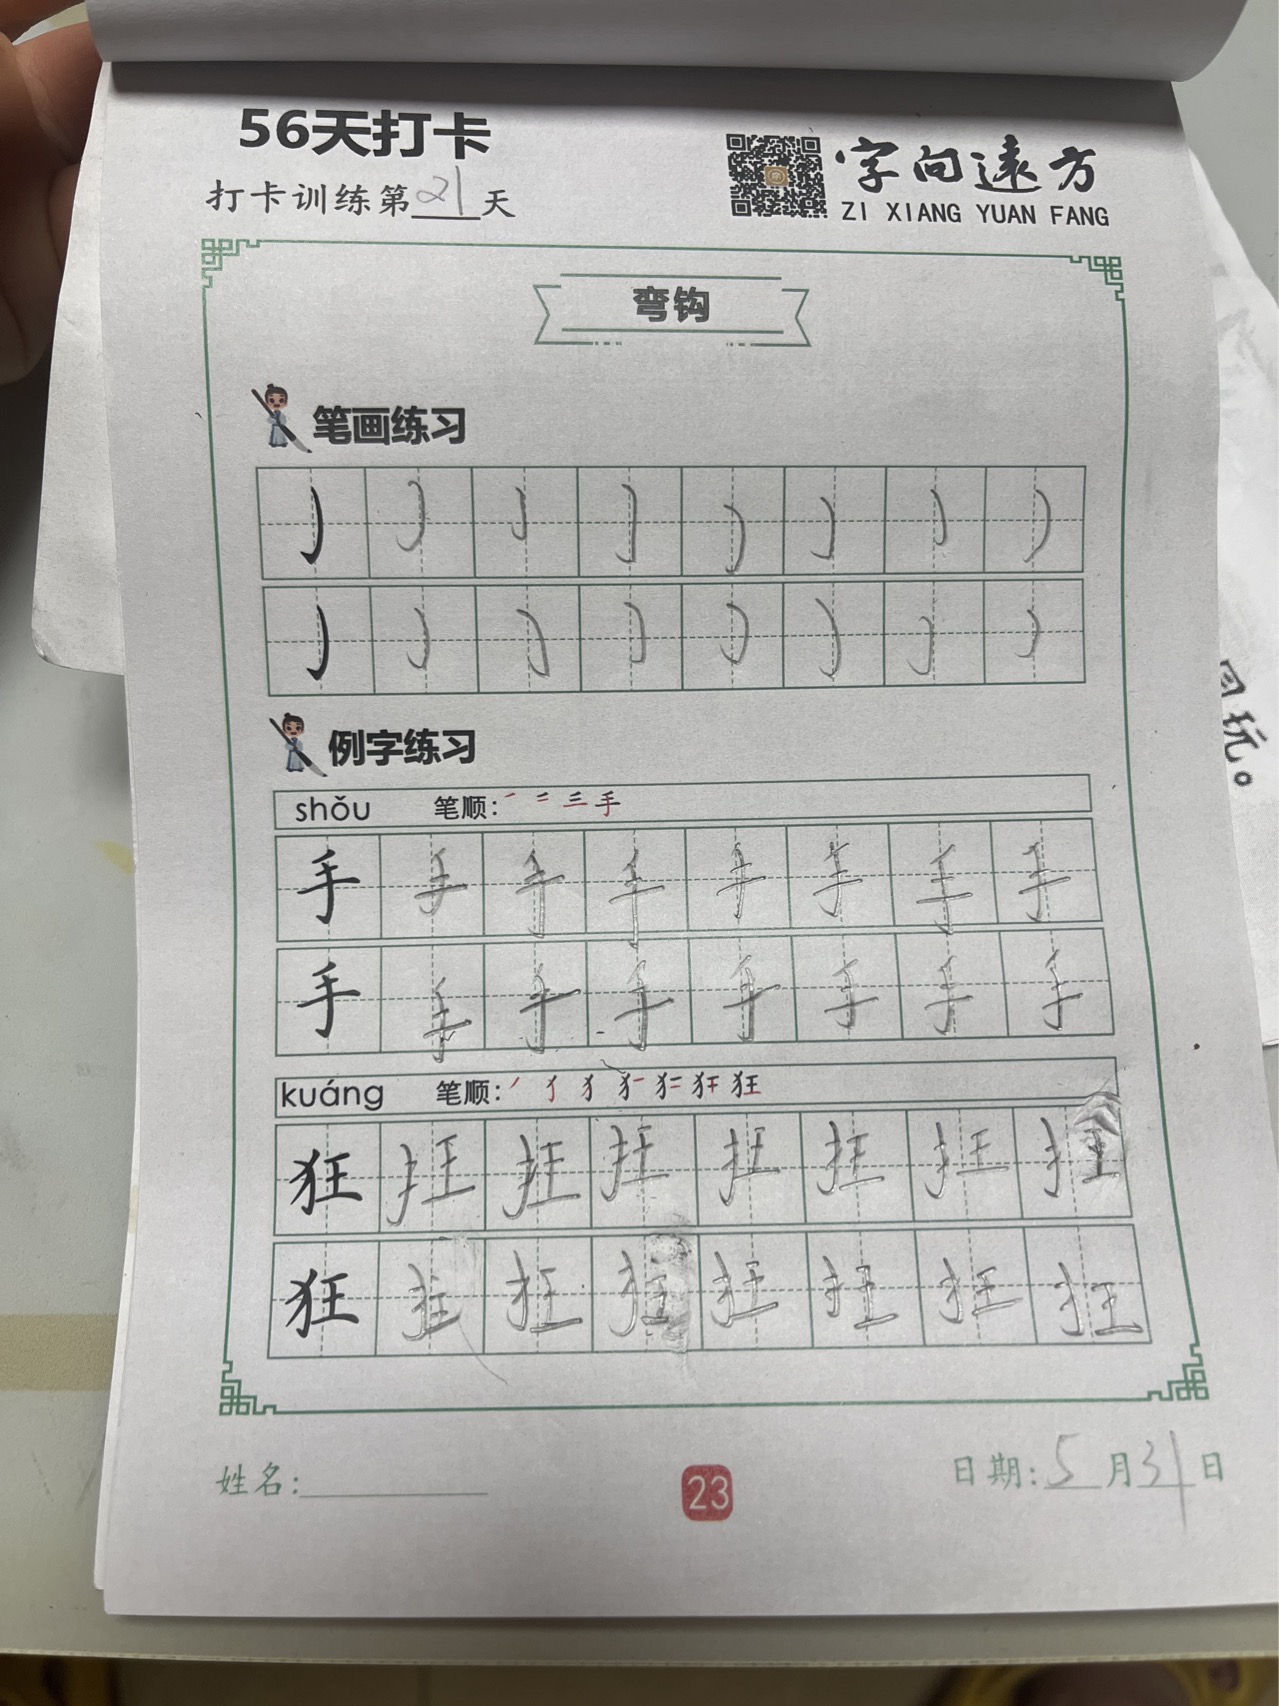 56天打卡
字向远方
打卡训练第21天
ZI XIANG YUAN FANG
弯钩
笔画练习
例字练习
shǒu 笔顺: 手
手 手 手 手 手 手 手 手
手 手 手 手 手 手 手 手
kuáng 笔顺: 狂
狂 狂 狂 狂 狂 狂 狂 狂
狂 狂 狂 狂 狂 狂 狂 狂
姓名:
23
日期:5月31日
玩。